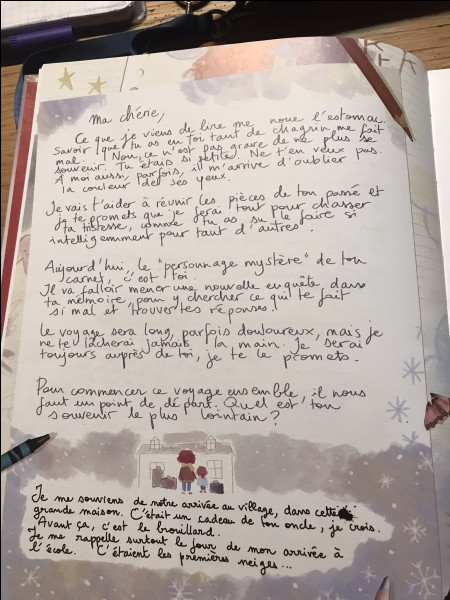 Ma chérie,
Ce que je viens de lire me noue l'estomac.
Savoir que tu as en toi tant de chagrin me fait
mal. Non, ce n'est pas grave de ne plus se
souvenir. Tu étais si petite. Ne t'en veux pas.
A moi aussi, parfois, il m'arrive d'oublier
la couleur de ses yeux.
Je vais t'aider à réunir les pièces de ton passé et
je te promets que je ferai tout pour chasser
ta tristesse, comme tu as su le faire si
intelligemment pour tant d'autres.
Aujourd'hui, le "personnage mystère" de ton
carnet, c'est toi.
Il va falloir mener une nouvelle enquête, dans
ta mémoire, pour y chercher ce qui te fait
si mal et trouver tes réponses.
Le voyage sera long, parfois douloureux, mais je
ne te lâcherai jamais la main. Je serai
toujours auprès de toi, je te le promets.
Pour commencer ce voyage ensemble, il nous
faut un point de départ. Quel est ton
souvenir le plus lointain ?
Je me souviens de notre arrivée au village, dans cette
grande maison. C'était un cadeau de ton oncle, je crois.
Avant ça, c'est le brouillard.
Je me rappelle surtout le jour de mon arrivée à
l'école. C'étaient les premières neiges...